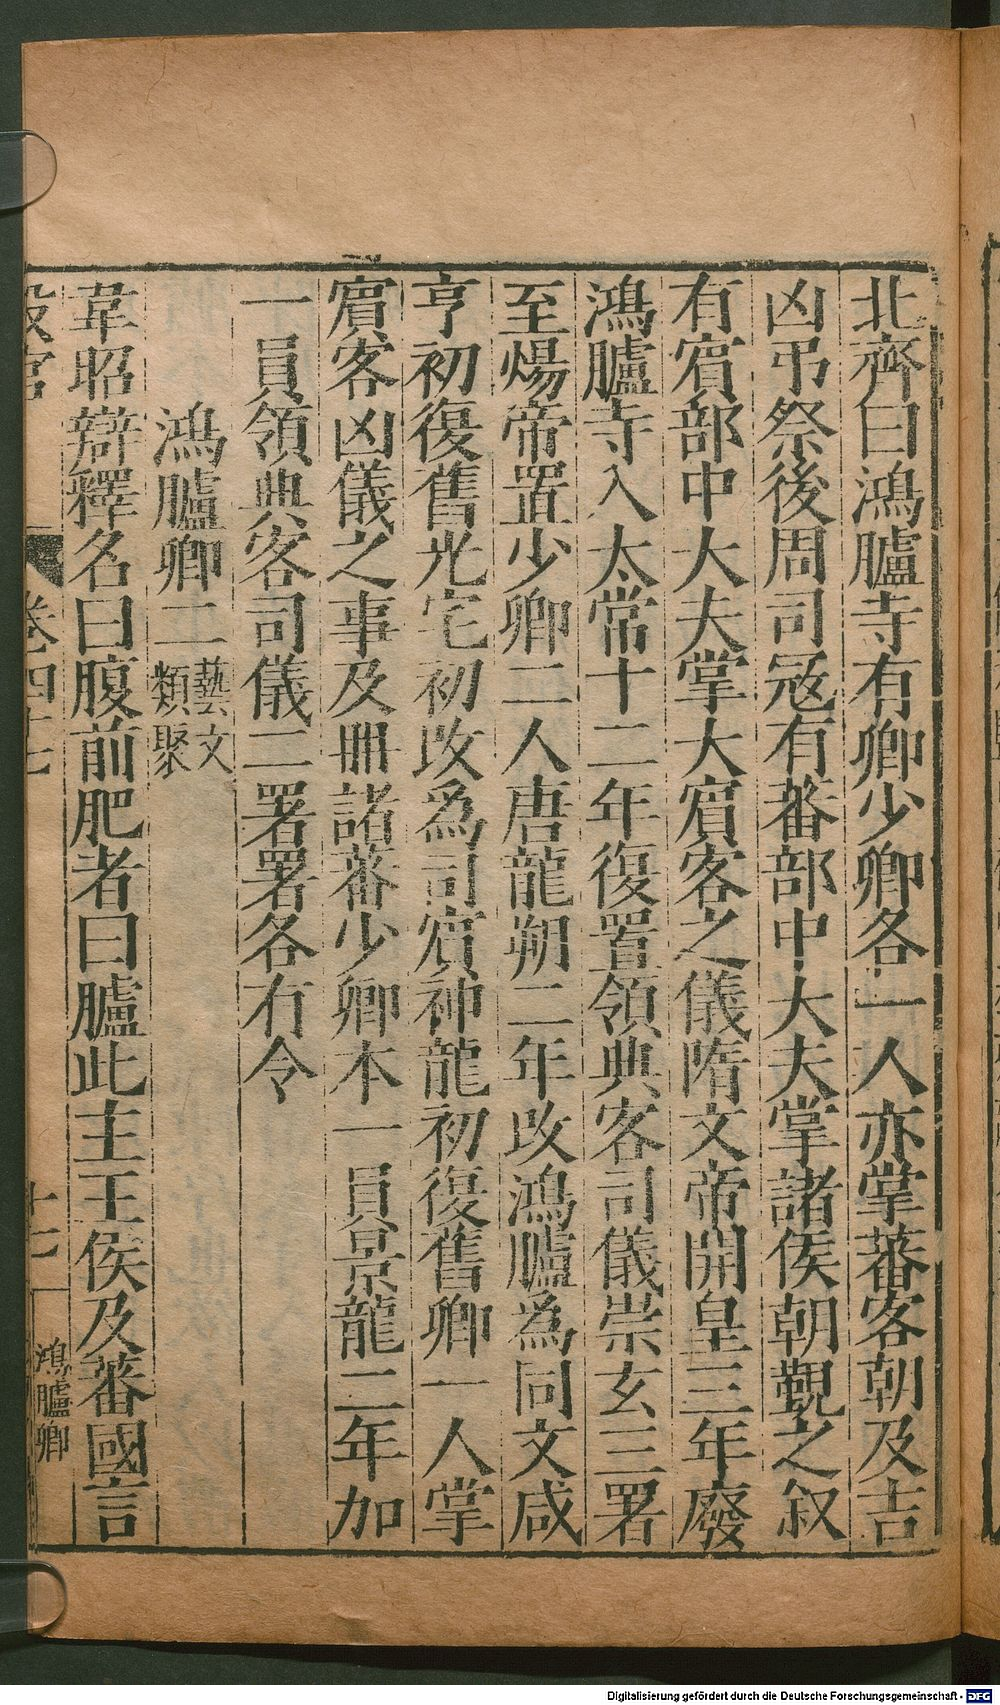 北齊曰鴻臚寺有卿少卿各一人亦掌蕃客朝及吉
凶弔祭後周司寇有蕃部中大夫掌諸侯朝覲之叙
有賔部中大夫掌大賔客之儀隋文帝開皇三年廢
鴻臚寺入太常十二年復置領典客司儀崇玄三署
至煬帝置少卿二人唐龍朔二年改鴻臚爲同文咸
亨初復舊光宅初改爲司賔神龍初復舊卿一人掌
賔客凶儀之事及冊諸蕃少卿本一員景龍二年加
一員領典客司儀二署署各有令
鴻臚卿二 藝文類聚
韋昭辯釋名曰腹前肥者曰臚此主王侯及蕃國言
設官 卷四十七 十七 鴻臚卿
Digitalisierung gefördert durch die Deutsche Forschungsgemeinschaft - DFG